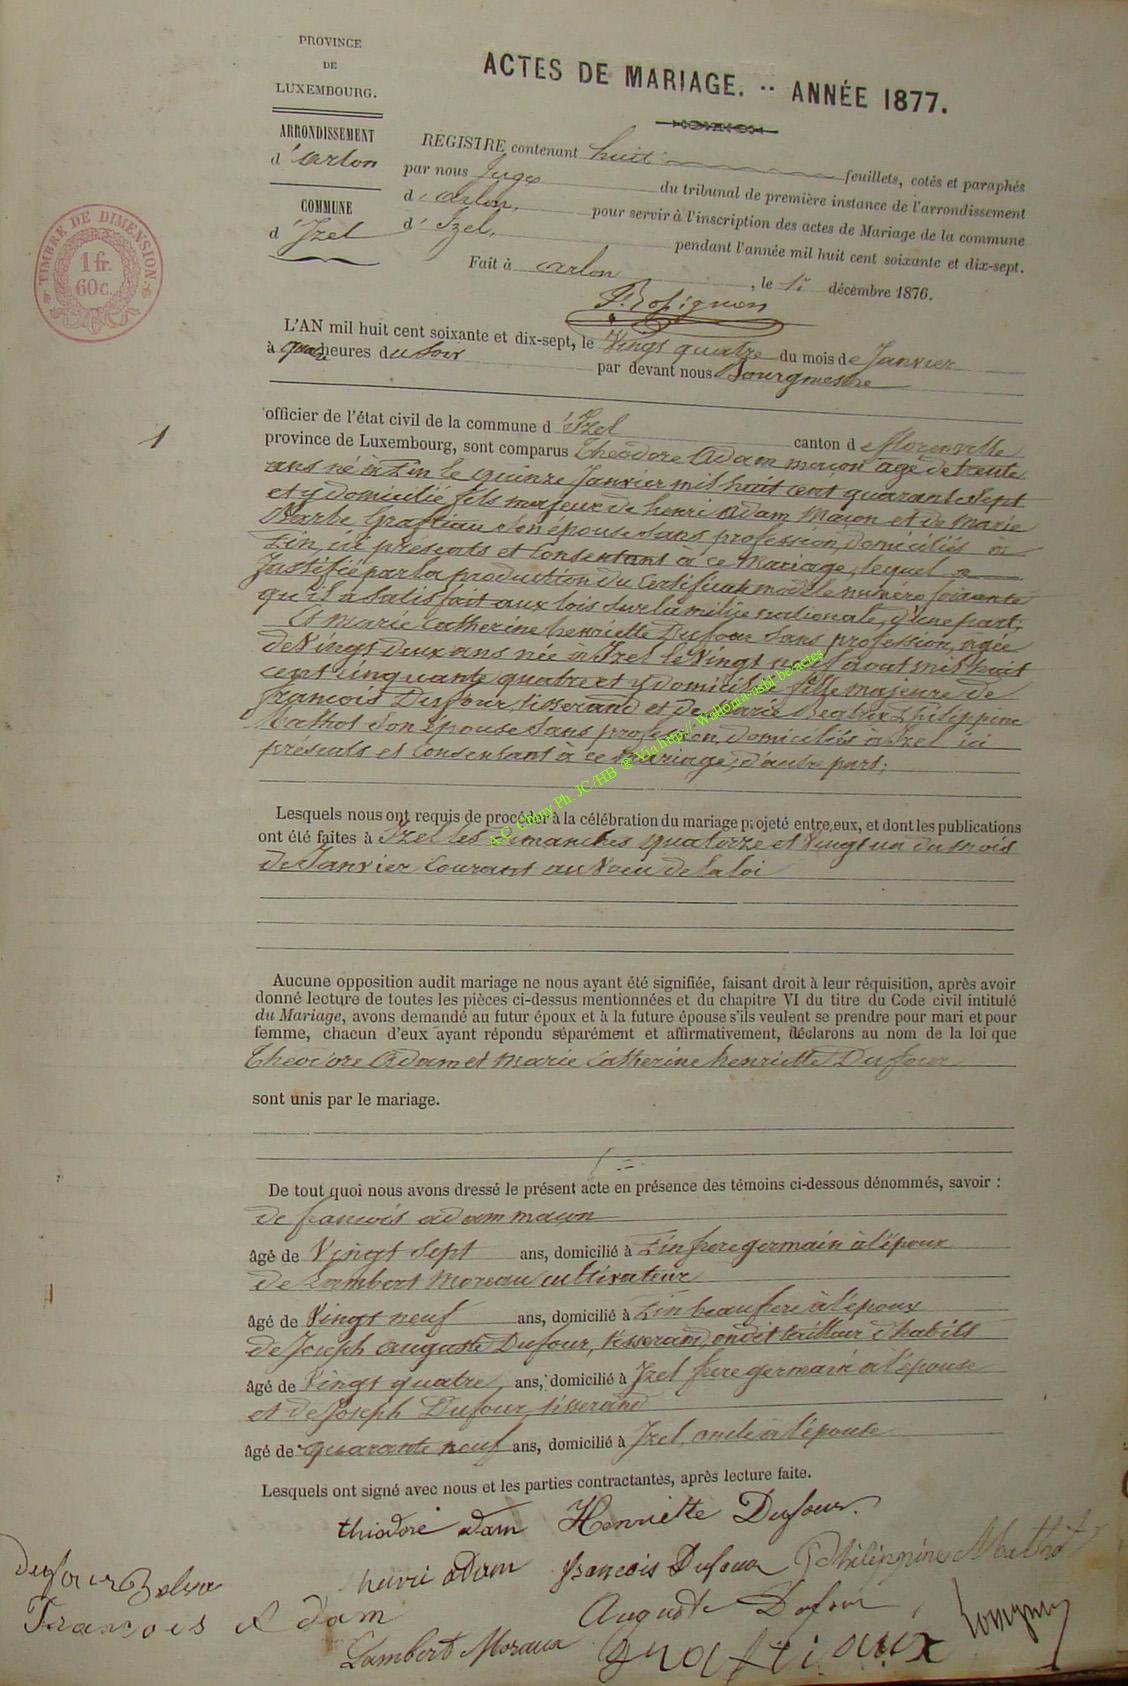 PROVINCE
DE
LUXEMBOURG.
ARRONDISSEMENT
d'Arlon
COMMUNE
d'Izel
TIMBRE DE DIMENSION
1 fr.
60c.
ACTES DE MARIAGE. -- ANNÉE 1877.
REGISTRE contenant huit feuillets, cotés et paraphés
par nous Juge du tribunal de première instance de l'arrondissement
d'Arlon, pour servir à l'inscription des actes de Mariage de la commune
d'Izel, pendant l'année mil huit cent soixante et dix-sept.
Fait à Arlon, le 1er décembre 1876.
1
L'AN mil huit cent soixante et dix-sept, le Vingt quatre du mois de Janvier
à heures du soir par devant nous Bourgmestre
officier de l'état civil de la commune d'Izel canton de florenville
province de Luxembourg, sont comparus Theodore Adam maçon agé de trente
ans né à Fin le quinze Janvier mil huit cent quarante sept
et y domicilié fils majeur de henri Adam Maçon et de Marie
Barbe Graftiau son épouse sans profession, domiciliés à
Fin, ici présents et Consentant à ce Mariage, lequel a
Justifié par la production du Certificat modèle numéro soixante
qu'il a Satisfait aux lois sur la milice nationale, d'une part;
Et marie Catherine henriette Dufour Sans profession, agée
de Vingt deux ans née à Izel le Vingt neuf août mil huit
cent cinquante quatre et y domiciliée fille majeure de
françois Dufour tisserand et de Marie Beatrix Philippine
Mathot Son épouse Sans profession, domiciliés à Izel ici
présents et Consentant à ce Mariage, d'autre part;
Lesquels nous ont requis de procéder à la célébration du mariage projeté entre eux, et dont les publications
ont été faites à Izel les Dimanches quatorze et Vingt un du mois
de Janvier Courant au Voeu de la loi
Aucune opposition audit mariage ne nous ayant été signifiée, faisant droit à leur réquisition, après avoir
donné lecture de toutes les pièces ci-dessus mentionnées et du chapitre VI du titre du Code civil intitulé
du Mariage, avons demandé au futur époux et à la future épouse s'ils veulent se prendre pour mari et pour
femme, chacun d'eux ayant répondu séparément et affirmativement, déclarons au nom de la loi que
Theodore Adam et Marie Catherine henriette Dufour
sont unis par le mariage.
De tout quoi nous avons dressé le présent acte en présence des témoins ci-dessous dénommés, savoir :
de françois adam maçon
âgé de Vingt Sept ans, domicilié à Fin frere germain à l'époux
de Lambert Moreau cultivateur
âgé de Vingt neuf ans, domicilié à Fin beau frere à l'époux
de Joseph Auguste Dufour, tisserand, tailleur d'habits
âgé de Vingt quatre ans, domicilié à Izel frere germain à l'épouse
et de Joseph Dufour tisserand
âgé de quarante neuf ans, domicilié à Izel, oncle à l'épouse
Lesquels ont signé avec nous et les parties contractantes, après lecture faite.
théodore adam Henriette Dufour
henri adam françois Dufour Philippine Mathot
dufour
François Adam Auguste Dufour
Lambert Moraux Graftiaux
A.C. Chiny Ph. JC/HB @ Via http:// Wallonia-asbl-be/actes